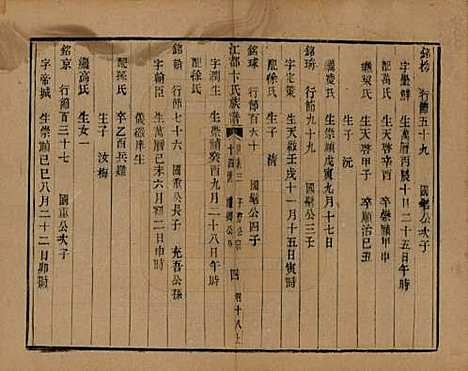 銘杉 行節五十九 國 公次子
字 生萬曆丙辰十月二十五日午時
配萬氏 生天啓辛酉 卒崇禎甲申
繼 氏 生天啓甲子 卒順治己丑
生子 沅
繼 氏 生崇禎戊寅九月十七日
銘琦 行節九十九 國 公三子
字定 生天啟壬戌十一月十五日寅時
配徐氏 生子 清
銘球 行節百六十 國 公四子
江都卞氏族譜 卷三 十四世 四
字潤生 生崇禎癸酉九月二十八日午時
配徐氏
銘 行節七十六 國 公長子 充吾公孫
字翰臣 生萬曆己未六月初二日申時
儀 庠生
配孫氏 卒乙酉兵難
生子 汝梅
繼高氏 生女一
銘京 行節百三十七 國 公次子
字帝城 生崇禎己巳八月二十二日卯時